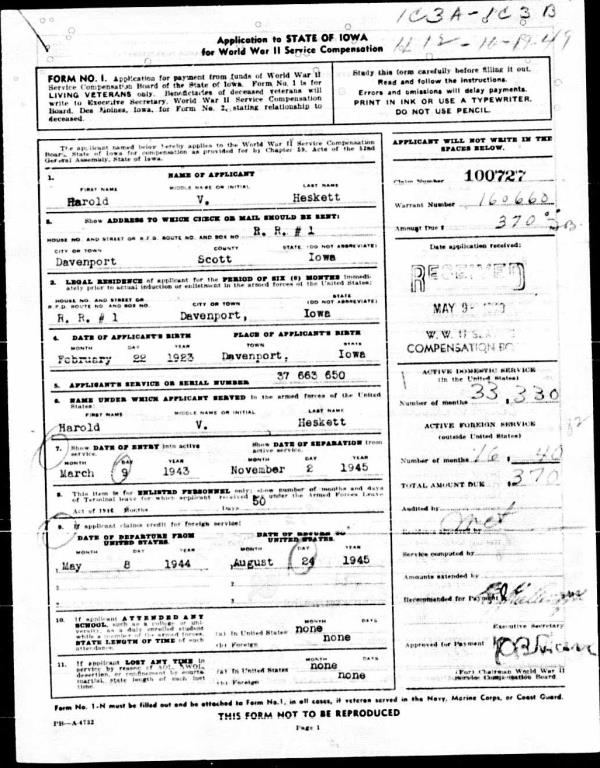 1C3A-8C3B
Application to STATE OF IOWA
for World War II Service Compensation
412-10-19-49
FORM NO. 1. Application for payment from funds of World War II
Service Compensation Board of the State of Iowa. Form No. 1 is for
LIVING VETERANS only. Beneficiaries of deceased veterans will
write to Executive Secretary, World War II Service Compensation
Board, Des Moines, Iowa, for Form No. 2, stating relationship to
deceased.
Study this form carefully before filling it out.
Read and follow the instructions.
Errors and omissions will delay payments.
PRINT IN INK OR USE A TYPEWRITER.
DO NOT USE PENCIL.
The applicant named below hereby applies to the World War II Service Compensation
Board, State of Iowa for compensation as provided for by Chapter 59, Acts of the 52nd
General Assembly, State of Iowa.
1. NAME OF APPLICANT
FIRST NAME MIDDLE NAME OR INITIAL LAST NAME
Harold V. Heskett
2. Show ADDRESS TO WHICH CHECK OR MAIL SHOULD BE SENT:
HOUSE NO. AND STREET OR R.F.D. ROUTE NO. AND BOX NO. R. R. # 1
CITY OR TOWN COUNTY STATE (DO NOT ABBREVIATE)
Davenport Scott Iowa
3. LEGAL RESIDENCE of applicant for the PERIOD OF SIX (6) MONTHS immedi-
ately prior to actual induction or enlistment in the armed forces of the United States:
HOUSE NO. AND STREET OR
R.F.D. ROUTE NO. AND BOX NO. CITY OR TOWN STATE
(DO NOT ABBREVIATE)
R. R. # 1 Davenport, Iowa
4. DATE OF APPLICANT'S BIRTH PLACE OF APPLICANT'S BIRTH
MONTH DAY YEAR TOWN STATE
February 22 1923 Davenport, Iowa
5. APPLICANT'S SERVICE OR SERIAL NUMBER 37 663 650
6. NAME UNDER WHICH APPLICANT SERVED in the armed forces of the United
States:
FIRST NAME MIDDLE NAME OR INITIAL LAST NAME
Harold V. Heskett
7. Show DATE OF ENTRY into active
service. Show DATE OF SEPARATION from
active service.
MONTH DAY YEAR MONTH DAY YEAR
March 9 1943 November 2 1945
8. This item is for ENLISTED PERSONNEL only: show number of months and days
of Terminal leave for which applicant received pay under the Armed Forces Leave
Act of 1946 Months Days 50
9. If applicant claims credit for foreign service:
DATE OF DEPARTURE FROM
UNITED STATES DATE OF RETURN TO
UNITED STATES
MONTH DAY YEAR MONTH DAY YEAR
1. May 8 1944 1. August 24 1945
2. 2.
3. 3.
10. If applicant ATTENDED ANY
SCHOOL, such as a college or uni-
versity, as a duly enrolled student
while a member of the armed forces,
STATE LENGTH OF TIME of such
attendance.
MONTH DAYS
(a) In United States none
(b) Foreign none
11. If applicant LOST ANY TIME in
service by reason of AOL, AWOL,
desertion, or confinement by courts
martial, state length of such lost
time.
MONTH DAYS
(a) In United States none
(b) Foreign none
APPLICANT WILL NOT WRITE IN THE
SPACES BELOW.
Claim Number 100727
Warrant Number 160660
Amount Due $ 370
Date application received:
RECEIVED
MAY 9
W. W. II
COMPENSATION
ACTIVE DOMESTIC SERVICE
(in the United States)
Number of months 33 $ 330
ACTIVE FOREIGN SERVICE
(outside United States)
Number of months 16 $ 40
TOTAL AMOUNT DUE $ 370
Audited by
Residence approved by
Service computed by
Amounts extended by
Recommended for Payment
Executive Secretary
Approved for Payment
(For) Chairman World War II
Service Compensation Board
Form No. 1-N must be filled out and be attached to Form No.1, in all cases, if veteran served in the Navy, Marine Corps, or Coast Guard.
THIS FORM NOT TO BE REPRODUCED
PB-A-4732
Page 1